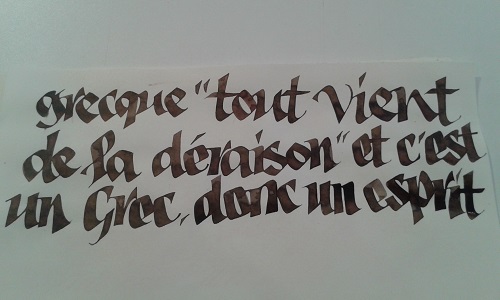 grecque "tout vient
de la déraison" et c'est
un Grec, donc un esprit